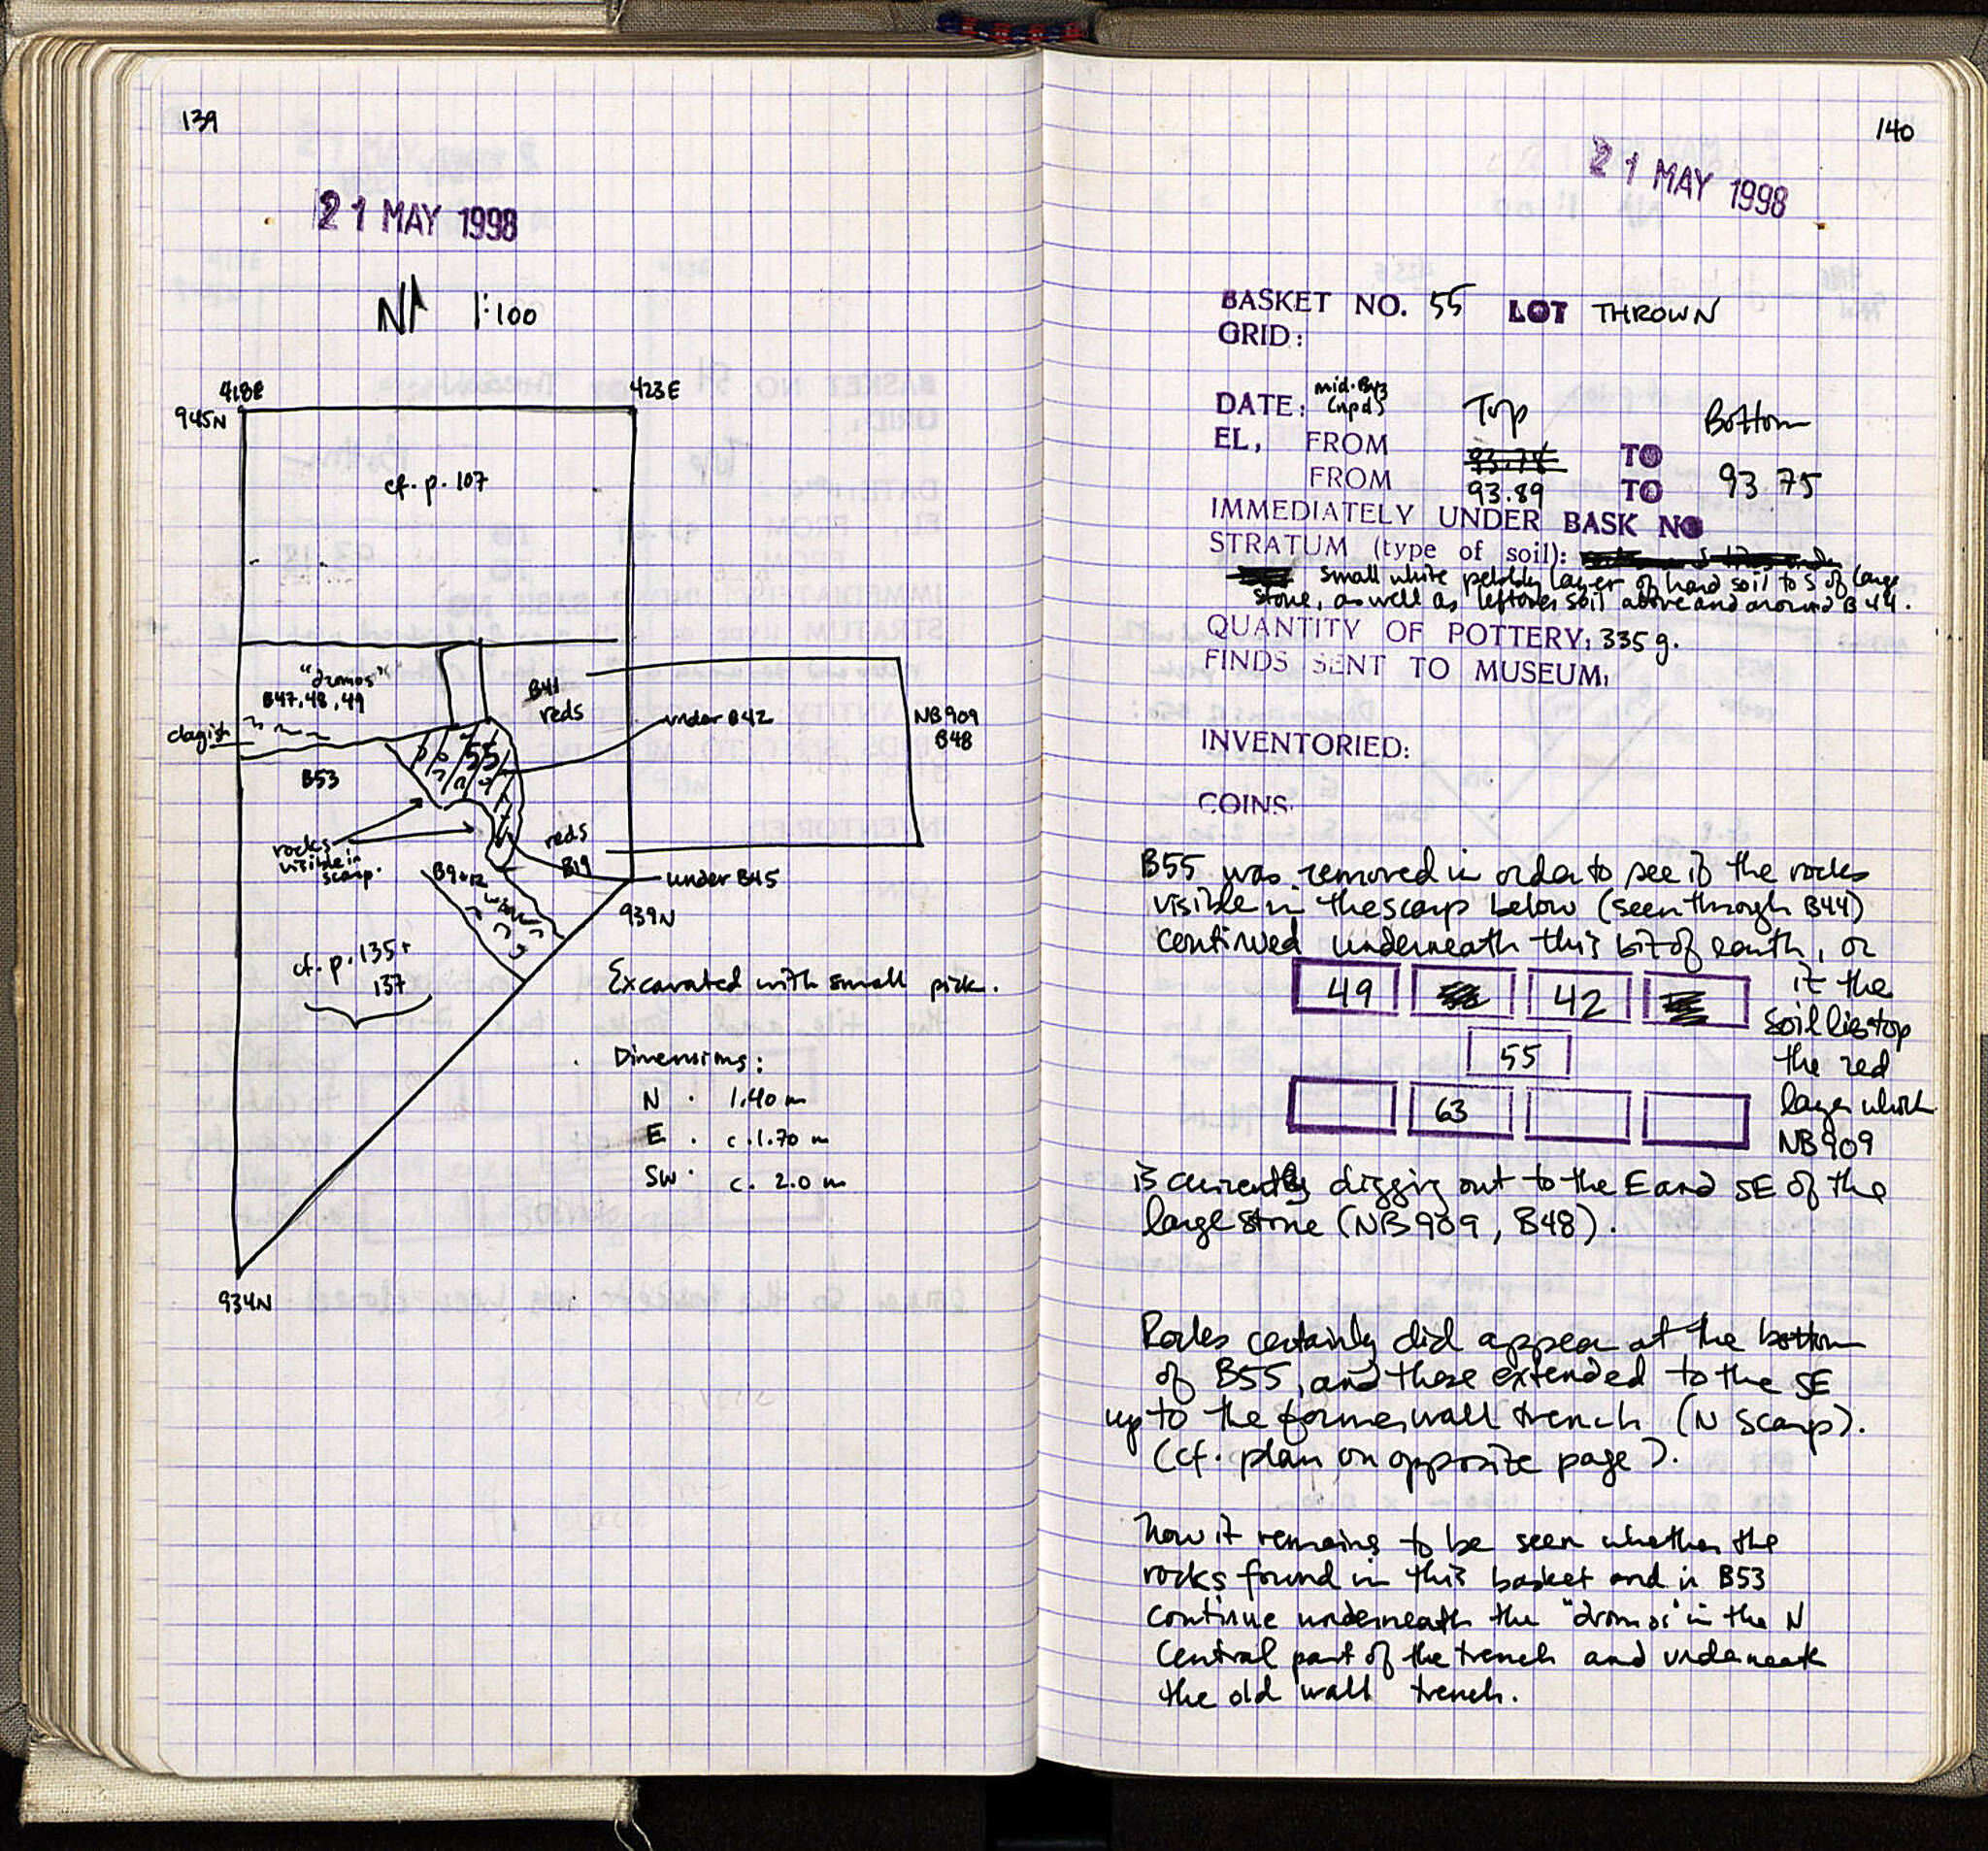 139
21 MAY 1998
N 1:100
418E
423E
945N
cf. p. 107
"dromos"
B47, 48, 49
B41
reds
under B42
NB909
B48
clayish
55
B53
rocks
visible in
scarp.
reds
B19
under B45
B9+12
939N
cf. p. 135+
137
Excavated with small pick.
Dimensions:
N . 1.40 m
E . c. 1.70 m
SW . c. 2.0 m
934N
140
21 MAY 1998
BASKET NO. 55 LOT THROWN
GRID:
DATE: Top Bottom
EL, FROM 93.78 TO
FROM 93.89 TO 93.75
IMMEDIATELY UNDER BASK NO
STRATUM (type of soil):
small white pebbly layer of hard soil to S of large
stone, as well as leftover soil above and around B44.
QUANTITY OF POTTERY, 335g.
FINDS SENT TO MUSEUM,
INVENTORIED:
COINS:
B55 was removed in order to see if the rocks
visible in the scarp below (seen through B44)
continued underneath this bit of earth, or
if the
soil lies top
the red
layer which
NB909
49 42
55
63
is currently digging out to the E and SE of the
large stone (NB909, B48).
Rocks certainly did appear at the bottom
of B55, and these extended to the SE
up to the former wall trench (N scarp).
(cf. plan on opposite page).
Now it remains to be seen whether the
rocks found in this basket and in B53
continue underneath the "dromos" in the N
central part of the trench and underneath
the old wall trench.